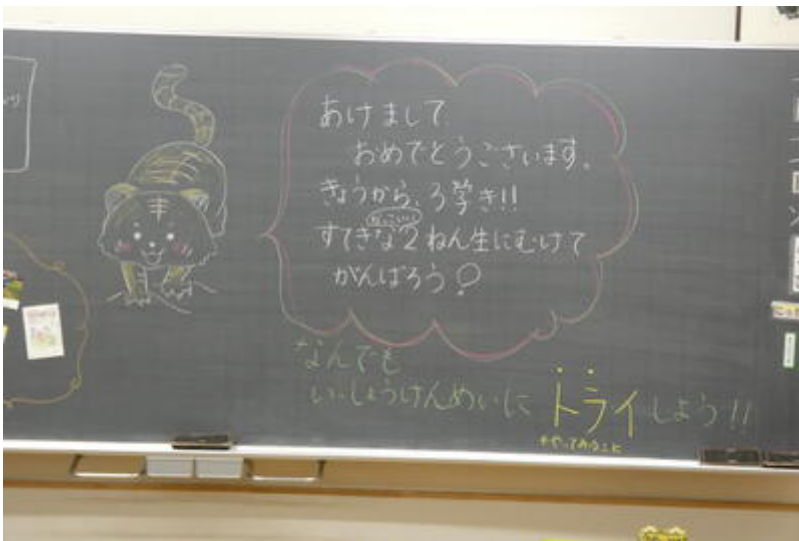 あけまして
おめでとうございます。
きょうから、3学き!!
かっこいい
すてきな2ねん生にむけて
がんばろう
なんでも
いっしょうけんめいに トライしよう!!
やってみること